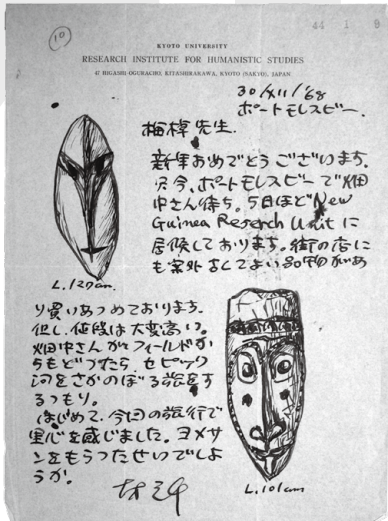 10
44 1 8
KYOTO UNIVERSITY
RESEARCH INSTITUTE FOR HUMANISTIC STUDIES
47 HIGASHI OGURACHI KITASHIRAKAWA, KYOTO (SAKYO), JAPAN
30/XII/'68
ポートモレスビー.
梅棹先生.
新年おめでとうございます。
只今、ポートモレスビーで畑
中さん待ち。5日ほどNew
Guinea Reserch Unitに
居候しております。街の店に
も案外よい品物があ
L. 127cm.
り買いあつめております。
但し、値段は大変高い。
畑中さんがフィールドか
らもどったら、セピック
河をさかのぼる旅をす
るつもり。
はじめて、今回の旅行で
里心を感じました。ヨメサ
ンをもらったせいでしょ
うか。
L. 101cm